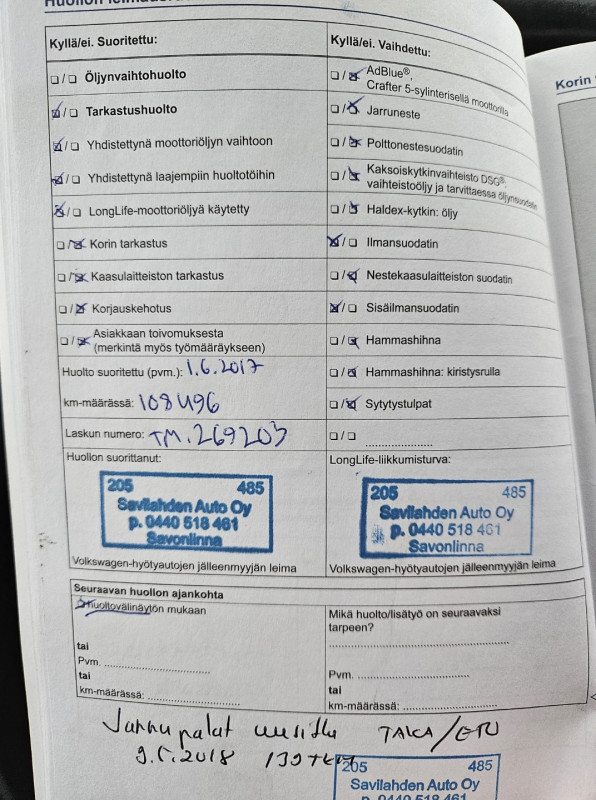 Kyllä/ei. Suoritettu:
☐ / ☐ Öljynvaihtohuolto
☒ / ☐ Tarkastushuolto
☒ / ☐ Yhdistettynä moottoriöljyn vaihtoon
☒ / ☐ Yhdistettynä laajempiin huoltotöihin
☒ / ☐ LongLife-moottoriöljyä käytetty
☐ / ☒ Korin tarkastus
☐ / ☒ Kaasulaitteiston tarkastus
☐ / ☒ Korjauskehotus
☐ / ☒ Asiakkaan toivomuksesta
(merkintä myös työmääräykseen)
Huolto suoritettu (pvm.): 1.6.2017
km-määrässä: 108496
Laskun numero: TM.269203
Huollon suorittanut:
205 485
Savilahden Auto Oy
p. 0440 518 461
Savonlinna
Volkswagen-hyötyautojen jälleenmyyjän leima
Kyllä/ei. Vaihdettu:
☐ / ☒ AdBlue®,
Crafter 5-sylinterisellä moottorilla
☐ / ☒ Jarruneste
☐ / ☒ Polttonestesuodatin
☐ / ☒ Kaksoiskytkinvaihteisto DSG®:
vaihteistoöljy ja tarvittaessa öljynsuodatin
☐ / ☒ Haldex-kytkin: öljy
☒ / ☐ Ilmansuodatin
☐ / ☒ Nestekaasulaitteiston suodatin
☒ / ☐ Sisäilmansuodatin
☐ / ☒ Hammashihna
☐ / ☒ Hammashihna: kiristysrulla
☐ / ☒ Sytytystulpat
☐ / ☐ ....................
LongLife-liikkumisturva:
205 485
Savilahden Auto Oy
p. 0440 518 461
Savonlinna
Volkswagen-hyötyautojen jälleenmyyjän leima
Seuraavan huollon ajankohta
☒ huoltovälinäytön mukaan
tai
Pvm. ..............................
tai
km-määrässä: ..........................
Mikä huolto/lisätyö on seuraavaksi
tarpeen?
..................................................
Pvm. ..............................
tai
km-määrässä: ..........................
Jarrupalat uusittu TAKA/ETU
9.5.2018
205 485
Savilahden Auto Oy
p. 0440 518 461
Korin